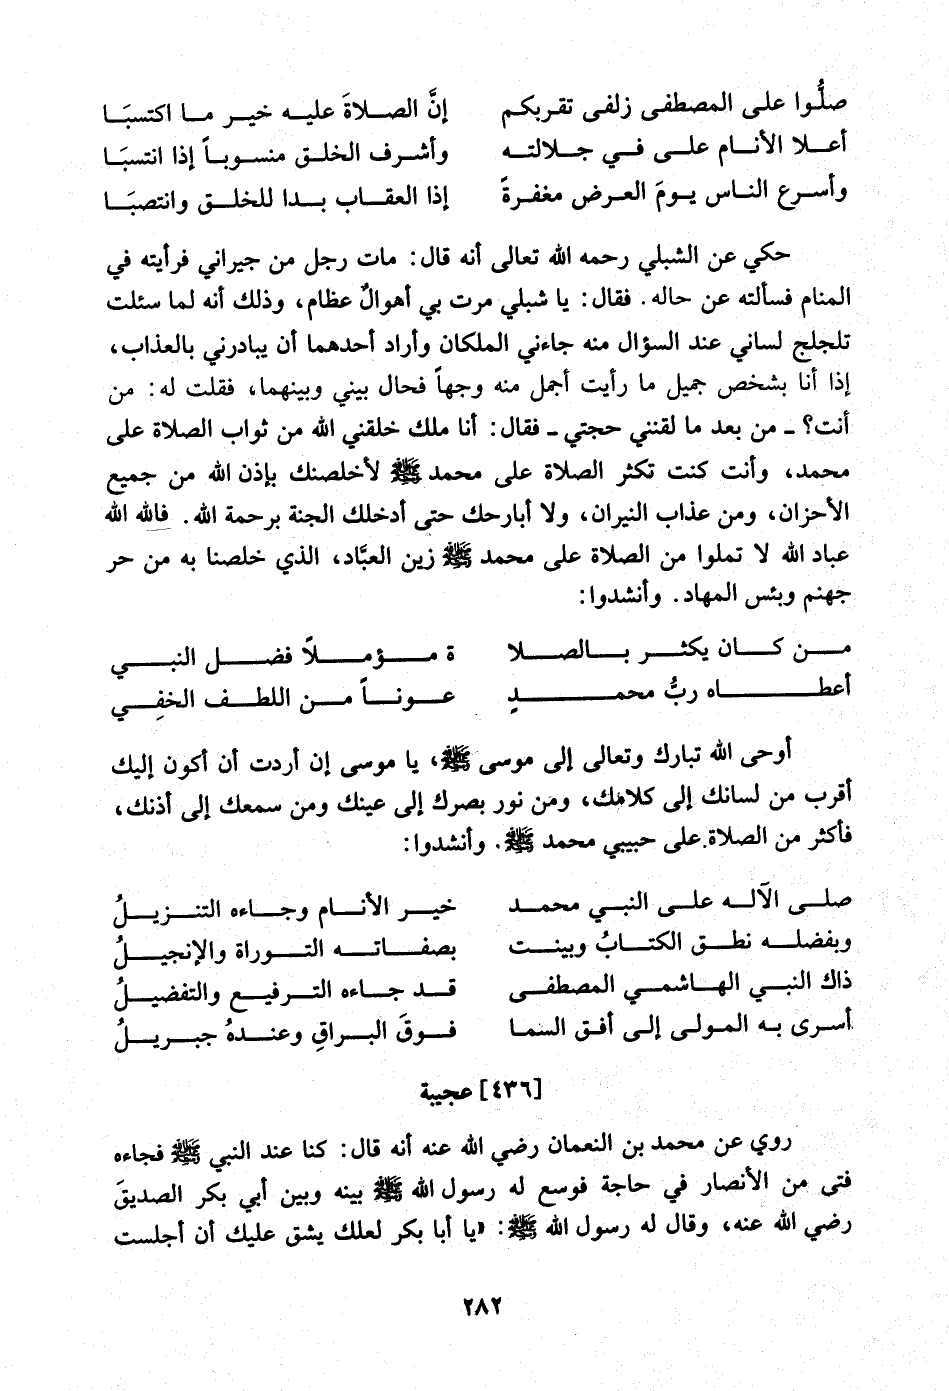 صلُّوا على المصطفى زلفى تقربكم إنَّ الصلاةَ عليه خير ما اكتسبَا
أعلا الأنام على في جلالته وأشرف الخلق منسوباً إذا انتسبَا
وأسرع الناس يومَ العرض مغفرةً إذا العقاب بدا للخلق وانتصبَا
حكي عن الشبلي رحمه الله تعالى أنه قال: مات رجل من جيراني فرأيته في
المنام فسألته عن حاله. فقال: يا شبلي مرت بي أهوالٌ عظام، وذلك أنه لما سئلت
تلجلج لساني عند السؤال منه جاءني الملكان وأراد أحدهما أن يبادرني بالعذاب،
إذا أنا بشخص جميل ما رأيت أجمل منه وجهاً فحال بيني وبينهما، فقلت له: من
أنت؟ ـ من بعد ما لقنني حجتي ـ فقال: أنا ملك خلقني الله من ثواب الصلاة على
محمد، وأنت كنت تكثر الصلاة على محمد ﷺ لأخلصنك بإذن الله من جميع
الأحزان، ومن عذاب النيران، ولا أبارحك حتى أدخلك الجنة برحمة الله. فالله الله
عباد الله لا تملوا من الصلاة على محمد ﷺ زين العبَّاد، الذي خلصنا به من حر
جهنم وبئس المهاد. وأنشدوا:
من كان يكثر بالصلا ة مؤملاً فضل النبي
أعطاه ربُّ محمدٍ عوناً من اللطف الخفِي
أوحى الله تبارك وتعالى إلى موسى ﷺ، يا موسى إن أردت أن أكون إليك
أقرب من لسانك إلى كلامك، ومن نور بصرك إلى عينك ومن سمعك إلى أذنك،
فأكثر من الصلاة على حبيبي محمد ﷺ. وأنشدوا:
صلى الآله على النبي محمد خير الأنام وجاءه التنزيلُ
وبفضله نطق الكتابُ وبينت بصفاته التوراة والإنجيلُ
ذاك النبي الهاشمي المصطفى قد جاءه الترفيع والتفضيلُ
أسرى به المولى إلى أفق السما فوقَ البراقِ وعندهُ جبريلُ
[٤٣٦] عجيبة
روي عن محمد بن النعمان رضي الله عنه أنه قال: كنا عند النبي ﷺ فجاءه
فتى من الأنصار في حاجة فوسع له رسول الله ﷺ بينه وبين أبي بكر الصديقَ
رضي الله عنه، وقال له رسول الله ﷺ: «يا أبا بكر لعلك يشق عليك أن أجلست
٢٨٢